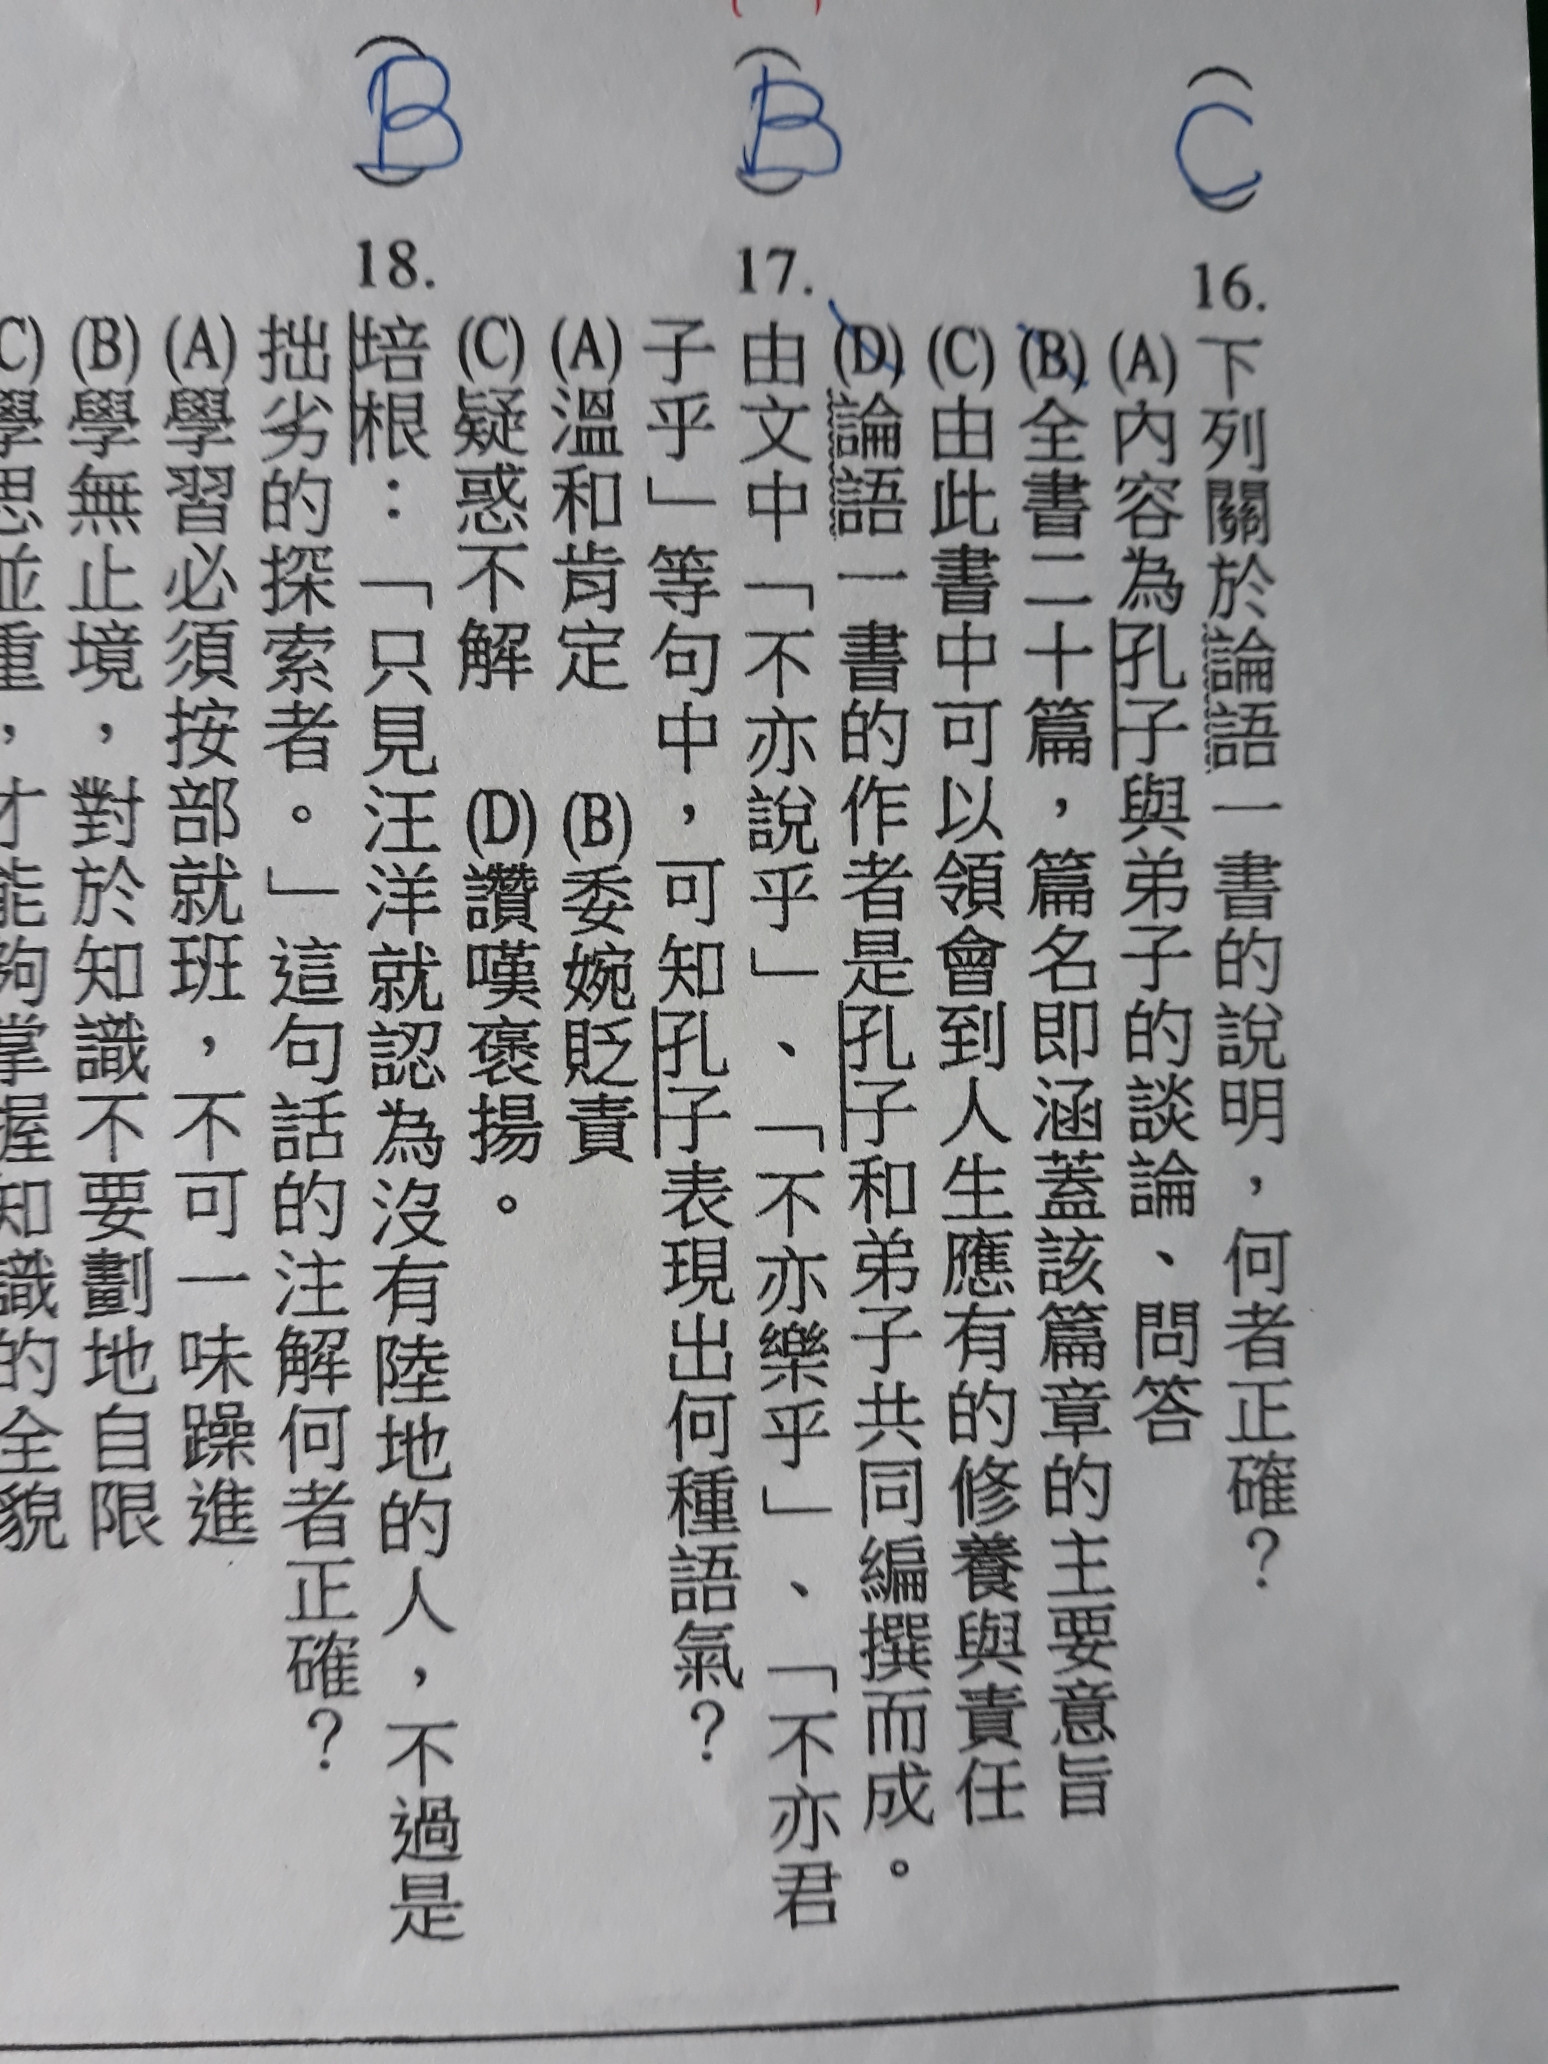 (C) 16. 下列關於論語一書的說明，何者正確？
(A)內容為孔子與弟子的談論、問答
(B)全書二十篇，篇名即涵蓋該篇章的主要意旨
(C)由此書中可以領會到人生應有的修養與責任
(D)論語一書的作者是孔子和弟子共同編撰而成。
(B) 17. 由文中「不亦說乎」、「不亦樂乎」、「不亦君
子乎」等句中，可知孔子表現出何種語氣？
(A)溫和肯定 (B)委婉貶責
(C)疑惑不解 (D)讚嘆褒揚。
(B) 18. 培根：「只見汪洋就認為沒有陸地的人，不過是
拙劣的探索者。」這句話的注解何者正確？
(A)學習必須按部就班，不可一味躁進
(B)學無止境，對於知識不要劃地自限
(C)學思並重，才能夠掌握知識的全貌